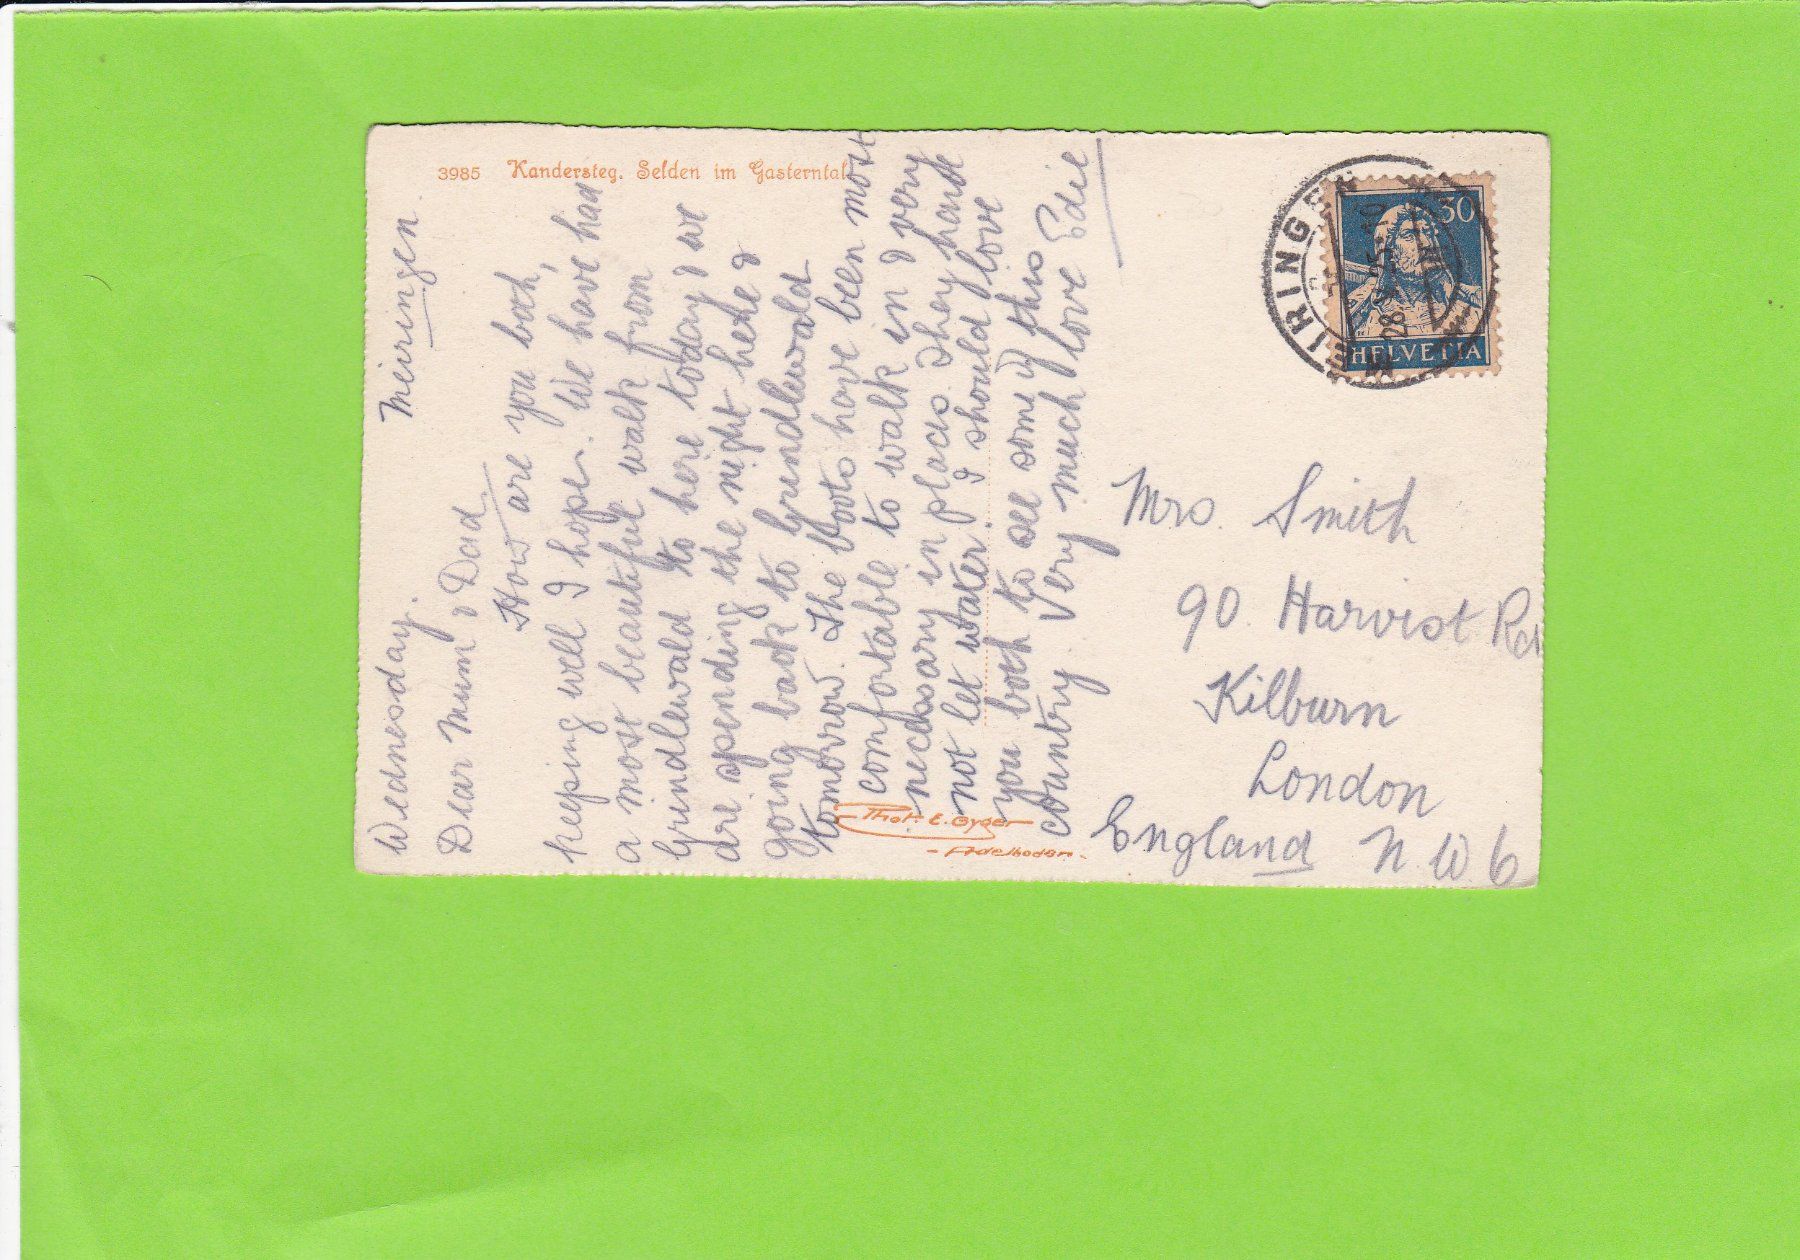 3985 Kandersteg. Selden im Gasterntal
Wednesday. Meiringen.
Dear Mum & Dad
How are you both,
keeping well I hope. We have had
a most beautiful walk from
Grindlewald to here today & we
are spending the night here &
going back to Grindlewald
tomorrow. The boots have been most
comfortable to walk in & very
necessary in places. They have
not let water. I should love
you both to see some of this
country Very much love Edie
Phot. E. Gyger
- Adelboden.
MEIRINGEN
30
HELVETIA
Mrs. Smith
90. Harvist Rd
Kilburn
London
England N. W. 6